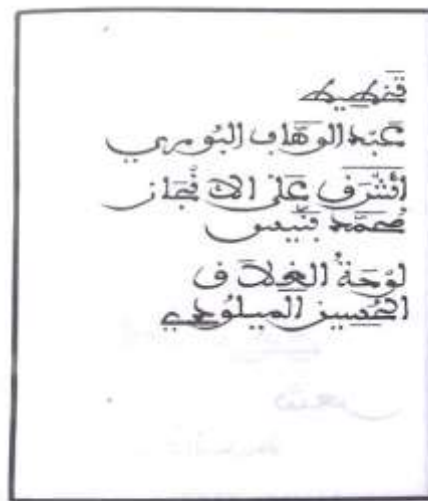 تخطيط
عبد الوهاب البوري
أشرف على الإنجاز
محمد بنيس
لوحة الغلاف
الحسين الميلودي